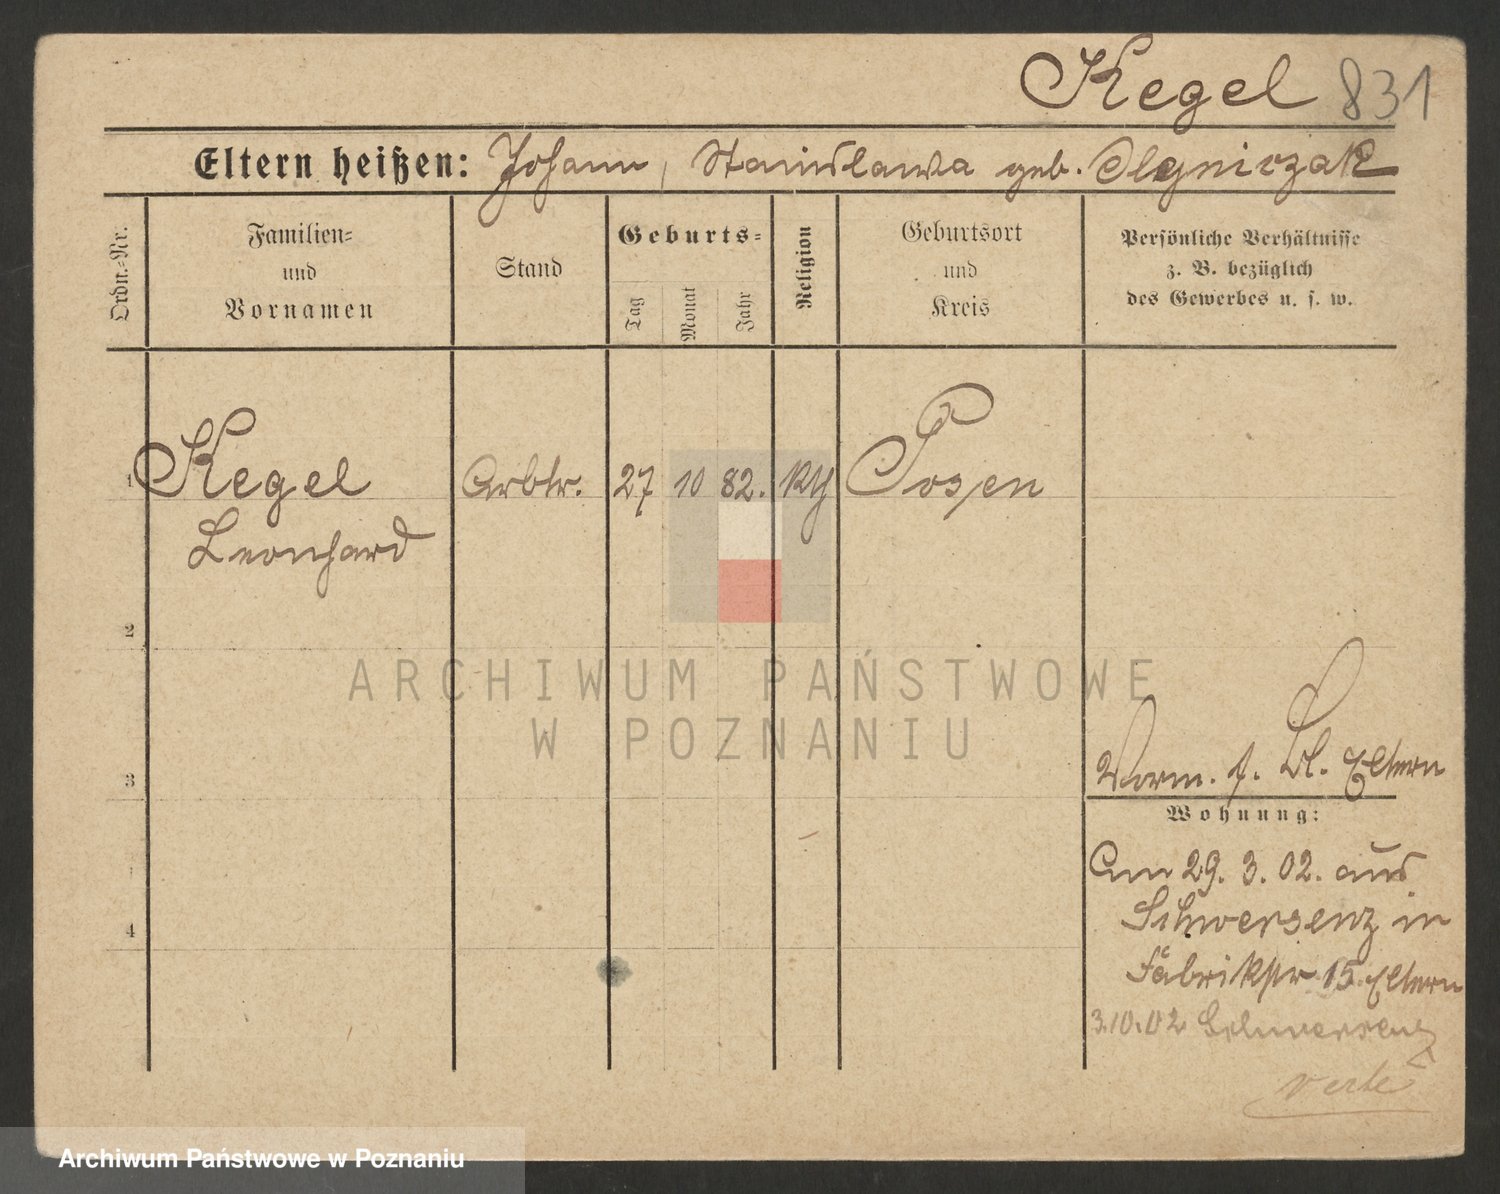 Kegel 831
Eltern heißen: Johann, Stanislawa geb. Olyniczak
Ordn.-Nr.
Familien- und Vornamen
Stand
Geburts-
Tag
Monat
Jahr
Religion
Geburtsort und Kreis
Persönliche Verhältnisse
z. B. bezüglich
des Gewerbes u. s. w.
1 Kegel Arbtr. 27 10 82. Posen
Leonhard
2
ARCHIWUM PAŃSTWOWE
W POZNANIU
3
Vorm. f. Bl. Eltern
Wohnung:
Am 29. 3. 02. aus
Schwersenz in
4
Fabrikstr 15. Eltern
3.10.02 Schwersenz
verte
Archiwum Państwowe w Poznaniu